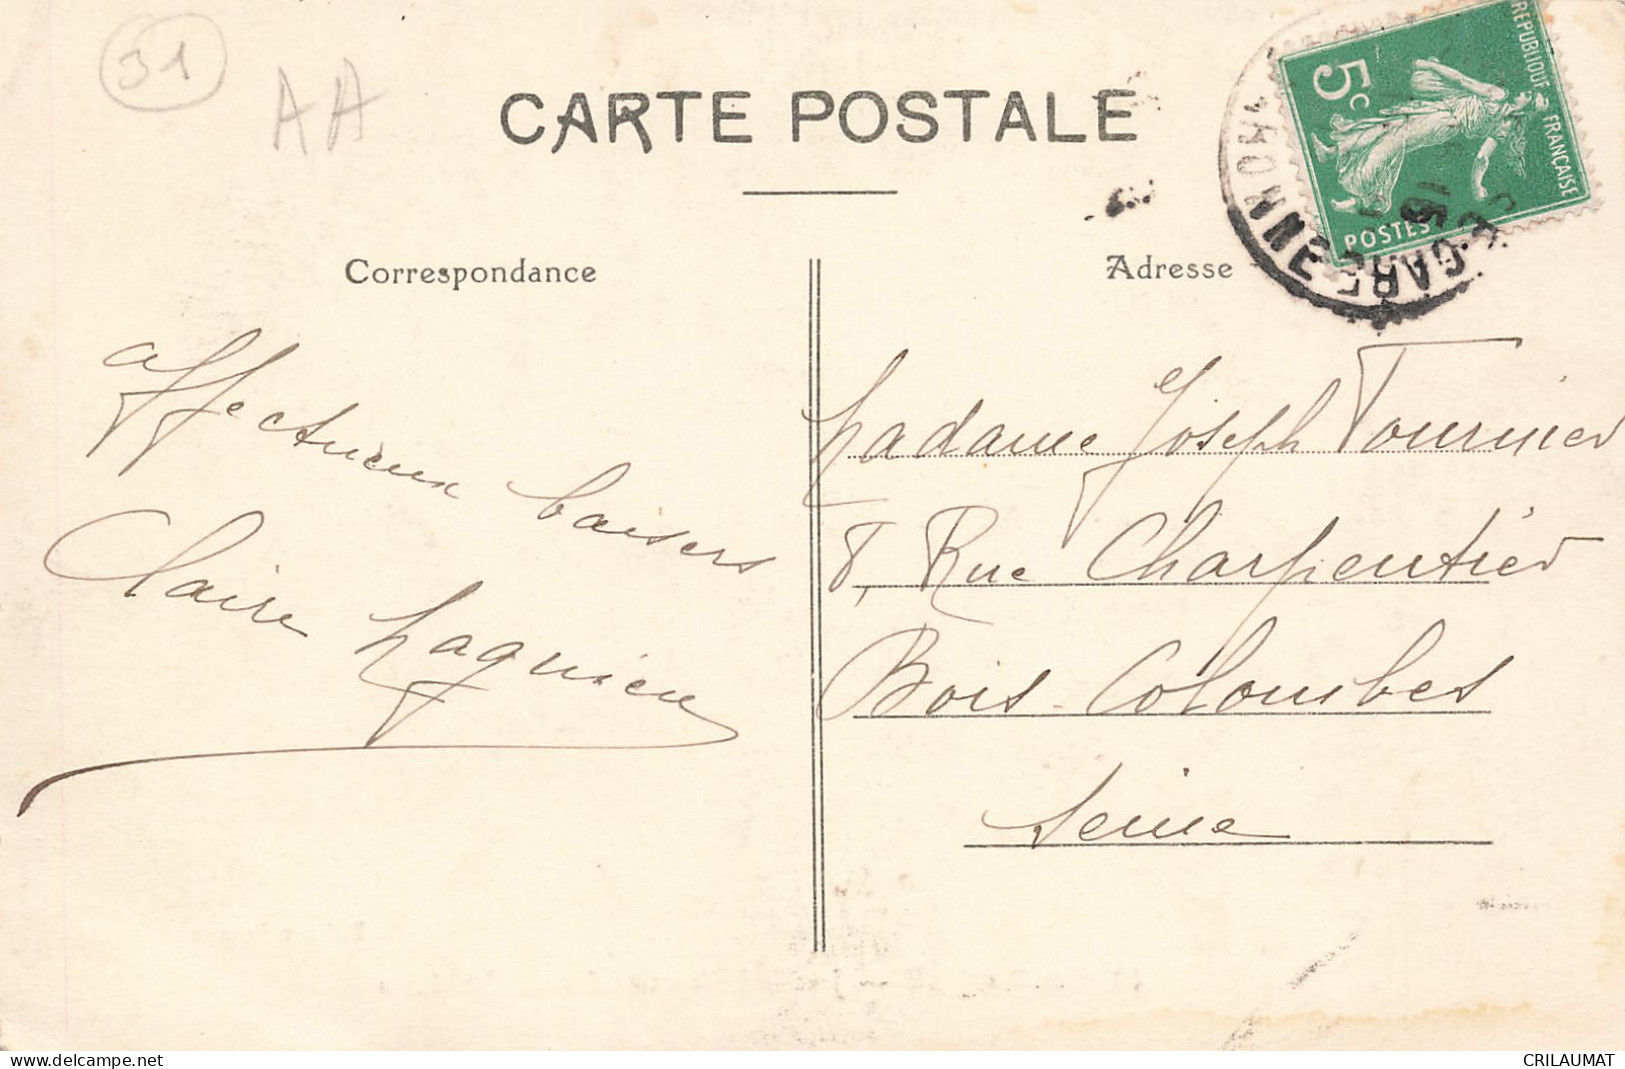 31
AA
CARTE POSTALE
REPUBLIQUE FRANÇAISE
5c
POSTES
GARE
Correspondance
Adresse
affectueux baisers
Claire
Madame Joseph Tournier
8, Rue Charpentier
Bois-Colombes
Seine
www.delcampe.net
CRILAUMAT